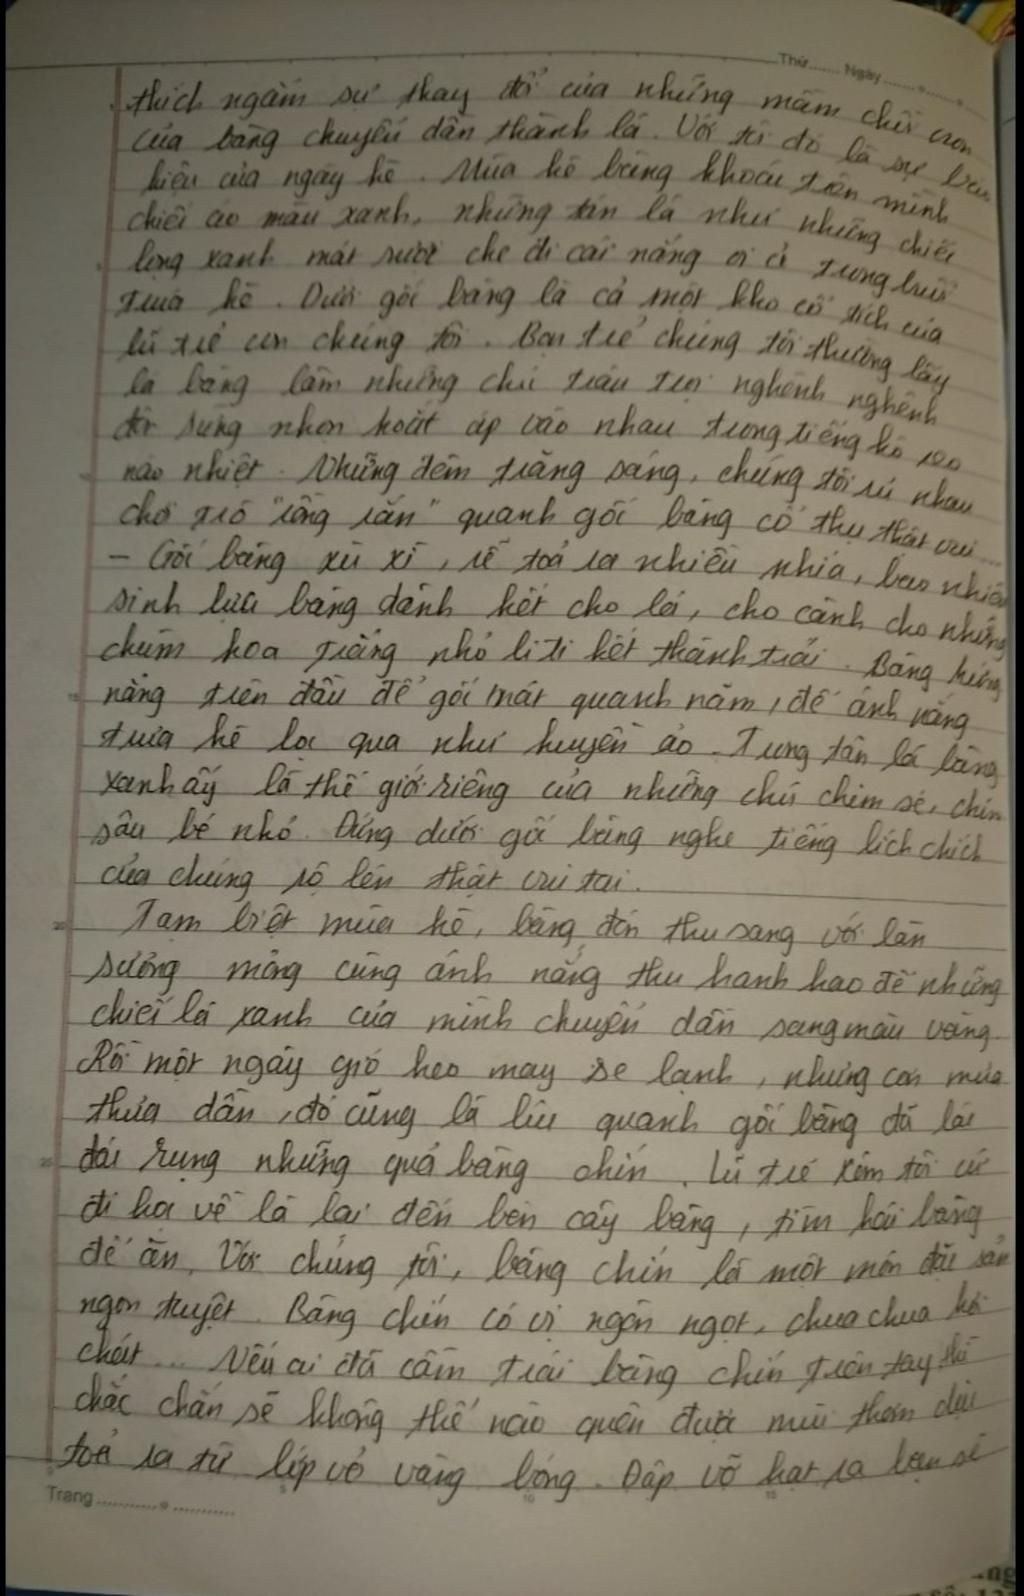 Thứ........ Ngày........
thích ngắm sự thay đổi của những mầm chồi non
của bàng chuyển dần thành lá. Với tôi đó là sự báo
hiệu của ngày hè. Mùa hè bàng khoác trên mình
chiếc áo màu xanh, những tán lá như những chiếc
lọng xanh mát rượi che đi cái nắng oi ả trong buổi
trưa hè. Dưới gốc bàng là cả một kho cổ tích của
lũ trẻ con chúng tôi. Bọn trẻ chúng tôi thường lấy
lá bàng làm những chú trâu trọi nghênh nghênh
đôi sừng nhọn hoắt áp vào nhau trong tiếng hò reo
náo nhiệt. Những đêm trăng sáng, chúng tôi rủ nhau
chơi trò "rồng rắn" quanh gốc bàng cổ thụ thật vui
- Gốc bàng xù xì, rễ toả ra nhiều nhía, bao nhiêu
sinh lực bàng dành hết cho lá, cho cành cho những
chùm hoa trắng nhỏ li ti kết thành trái. Bàng hứng
nắng trên đầu để gốc mát quanh năm, để ánh nắng
trưa hè lọc qua như huyền ảo. Trong tán lá bàng
xanh ấy là thế giới riêng của những chú chim sẻ, chim
sâu bé nhỏ. Đứng dưới gốc bàng nghe tiếng lích chích
của chúng rộ lên thật vui tai.
Tạm biệt mùa hè, bàng đón thu sang với làn
sương mỏng cùng ánh nắng thu hanh hao để những
chiếc lá xanh của mình chuyển dần sang màu vàng.
Rồi một ngày gió heo may se lạnh, những cơn mưa
thưa dần, đó cũng là lúc quanh gốc bàng đã lác
đác rụng những quả bàng chín. Lũ trẻ xóm tôi cứ
đi học về là lại đến bên cây bàng, tìm hái bàng
để ăn. Với chúng tôi, bàng chín là một món đặc sản
ngon tuyệt. Bàng chín có vị ngòn ngọt, chua chua hơi
chát... Nếu ai đã cầm trái bàng chín trên tay thì
chắc chắn sẽ không thể nào quên được mùi thơm dịu
toả ra từ lớp vỏ vàng bóng. Đập vỡ hạt ra bạn sẽ
Trang........